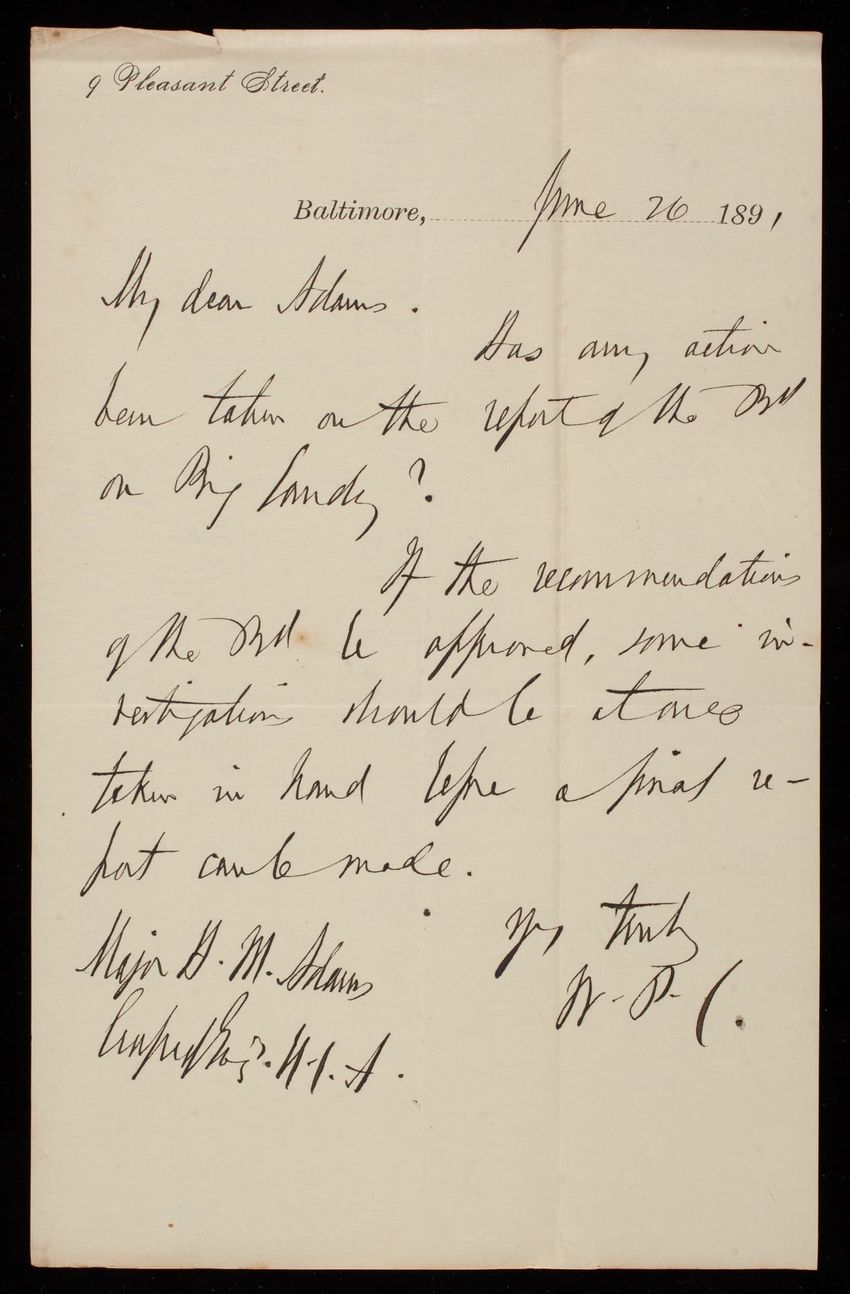 9 Pleasant Street.
Baltimore, June 26 1891
My dear Adams.
Has any action
been taken on the report of the Bd
on Big Sandy?
If the recommendations
of the Bd be approved, some in-
vestigations should be at once
taken in hand before a final re-
port can be made.
Yrs truly
W. P. C.
Major H. M. Adams
Corps of Eng'rs. U.S.A.